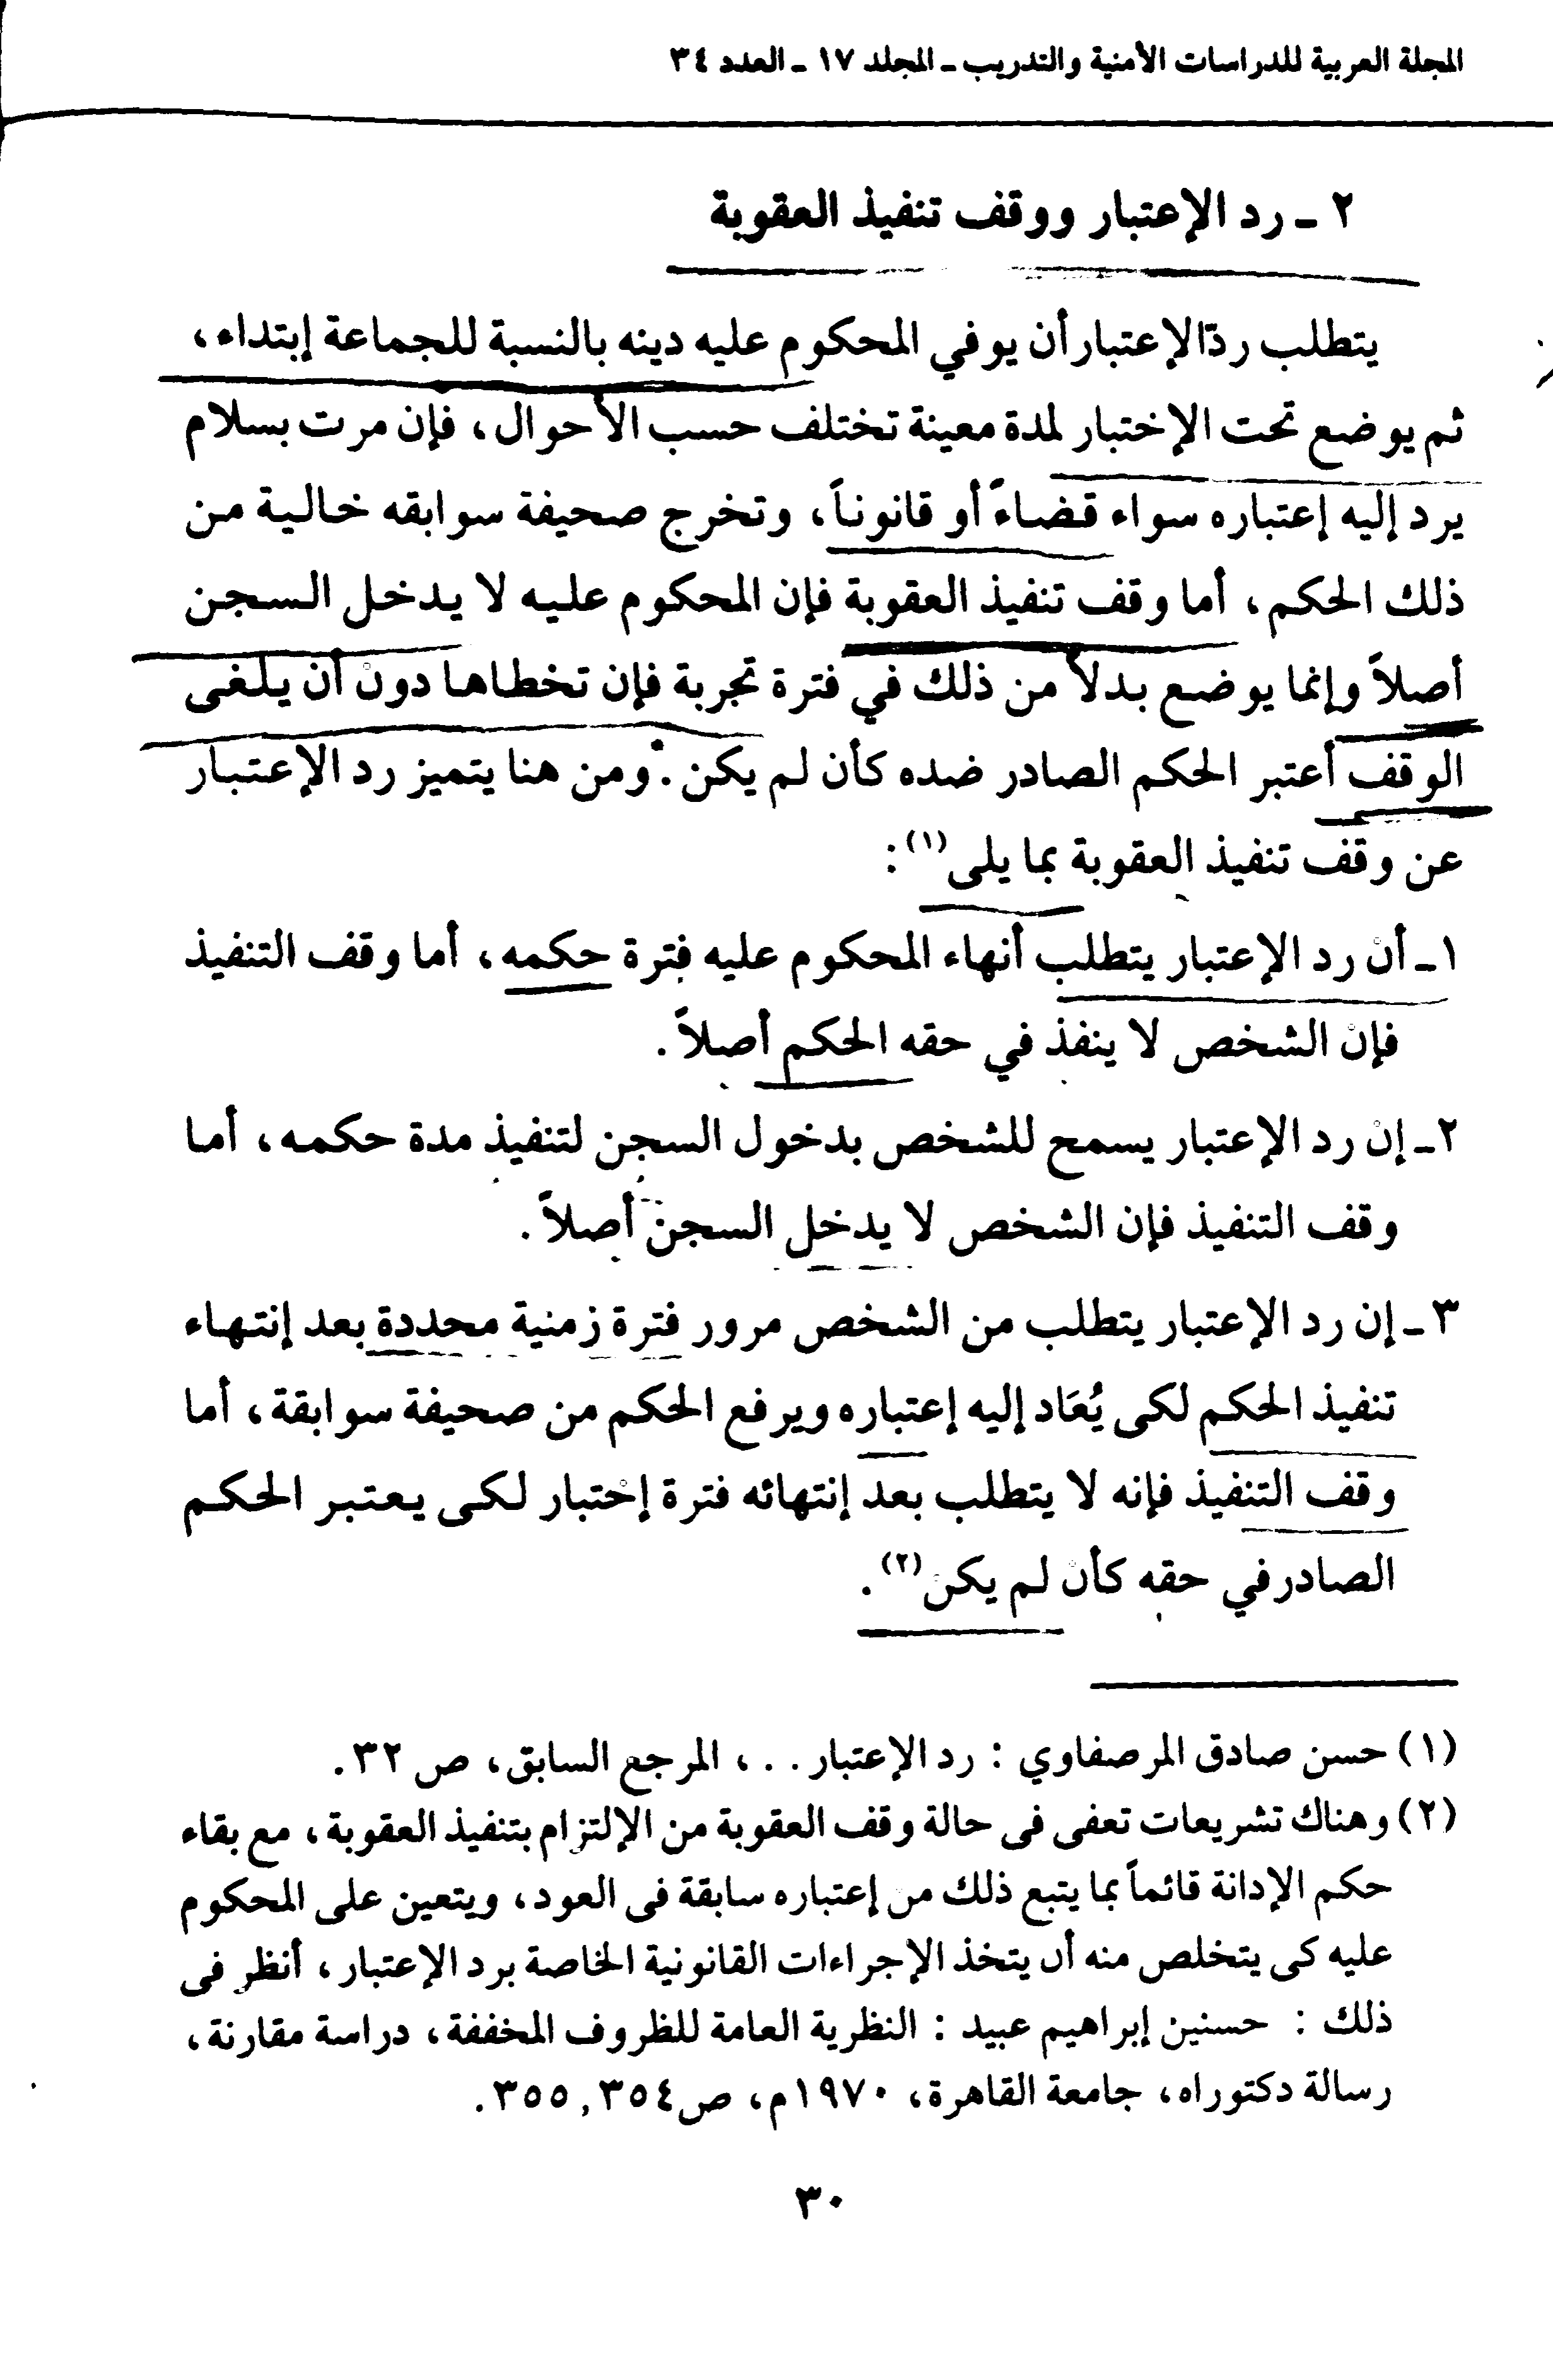 المجلة العربية للدراسات الأمنية والتدريب ـ المجلد ١٧ ـ العدد ٣٤
٢ ـ رد الإعتبار ووقف تنفيذ العقوبة
يتطلب ردّ الإعتبار أن يوفي المحكوم عليه دينه بالنسبة للجماعة إبتداء،
ثم يوضع تحت الإختبار لمدة معينة تختلف حسب الأحوال، فإن مرت بسلام
يرد إليه إعتباره سواء قضاءً أو قانوناً، وتخرج صحيفة سوابقه خالية من
ذلك الحكم، أما وقف تنفيذ العقوبة فإن المحكوم عليه لا يدخل السجن
أصلاً وإنما يوضع بدلاً من ذلك في فترة تجربة فإن تخطاها دون أن يلغى
الوقف أعتبر الحكم الصادر ضده كأن لم يكن. ومن هنا يتميز رد الإعتبار
عن وقف تنفيذ العقوبة بما يلى(١):
١ـ أن رد الإعتبار يتطلب أنهاء المحكوم عليه فترة حكمه، أما وقف التنفيذ
فإن الشخص لا ينفذ في حقه الحكم أصلاً.
٢ـ إن رد الإعتبار يسمح للشخص بدخول السجن لتنفيذ مدة حكمه، أما
وقف التنفيذ فإن الشخص لا يدخل السجن أصلاً.
٣ـ إن رد الإعتبار يتطلب من الشخص مرور فترة زمنية محددة بعد إنتهاء
تنفيذ الحكم لكى يُعَاد إليه إعتباره ويرفع الحكم من صحيفة سوابقة، أما
وقف التنفيذ فإنه لا يتطلب بعد إنتهائه فترة إختبار لكى يعتبر الحكم
الصادر في حقه كأن لم يكن(٢).
(١) حسن صادق المرصفاوي : رد الإعتبار . . ، المرجع السابق، ص ٣٢.
(٢) وهناك تشريعات تعفى فى حالة وقف العقوبة من الإلتزام بتنفيذ العقوبة، مع بقاء
حكم الإدانة قائماً بما يتبع ذلك من إعتباره سابقة فى العود، ويتعين على المحكوم
عليه كى يتخلص منه أن يتخذ الإجراءات القانونية الخاصة برد الإعتبار، أنظر فى
ذلك : حسنين إبراهيم عبيد : النظرية العامة للظروف المخففة، دراسة مقارنة،
رسالة دكتوراه، جامعة القاهرة، ١٩٧٠م، ص٣٥٤, ٣٥٥.
٣٠